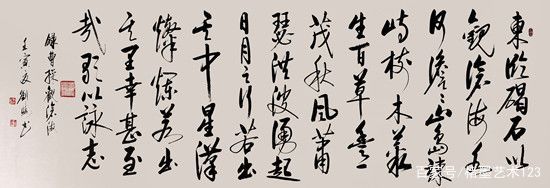 東臨碣石以
觀滄海水
何澹澹山島竦
峙樹木叢
生百草豐
茂秋風蕭
瑟洪波湧起
日月之行若出
其中星漢
燦爛若出
其里幸甚至
哉歌以詠志
錄曹操觀滄海
壬寅夏劉書
百家号/墨艺术123